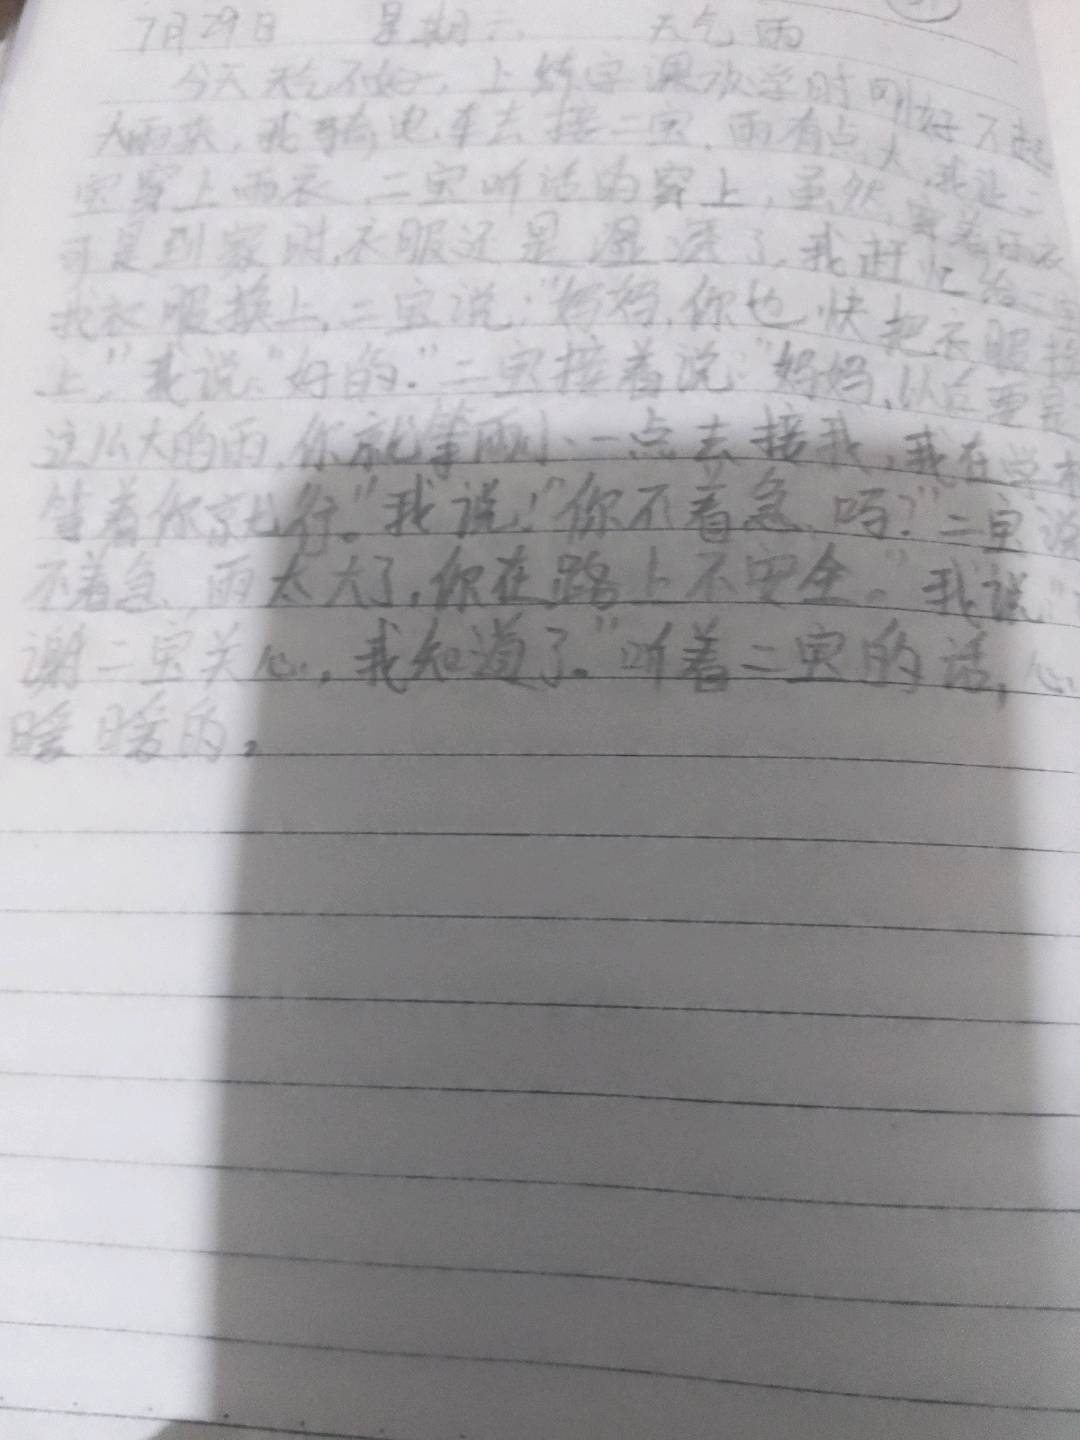 7月29日 星期六 天气 雨
今天天气不好,上练字课放学时刚好下起
大雨来,我骑电车去接二宝,雨有点大,我让二
宝穿上雨衣,二宝听话的穿上,虽然,穿着雨衣
可是到家时,衣服还是湿透了,我赶忙给二宝
找衣服换上,二宝说:"妈妈,你也快把衣服换
上。"我说:"好的。"二宝接着说:"妈妈,以后要是
这么大的雨,你就等雨小一点去接我,我在学校
等着你就行。"我说:"你不着急吗?"二宝说
不着急,雨太大了,你在路上不安全。"我说:"
谢二宝关心,我知道了。"听着二宝的话,心
暖暖的。